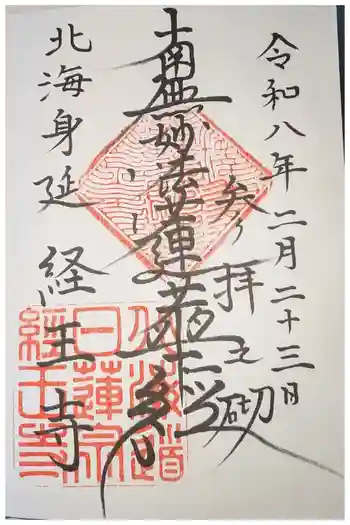 令和八年二月二十三日
参り拝之砌
南無妙法蓮華経
北海身延
経王寺
北海道
日蓮宗
経王寺